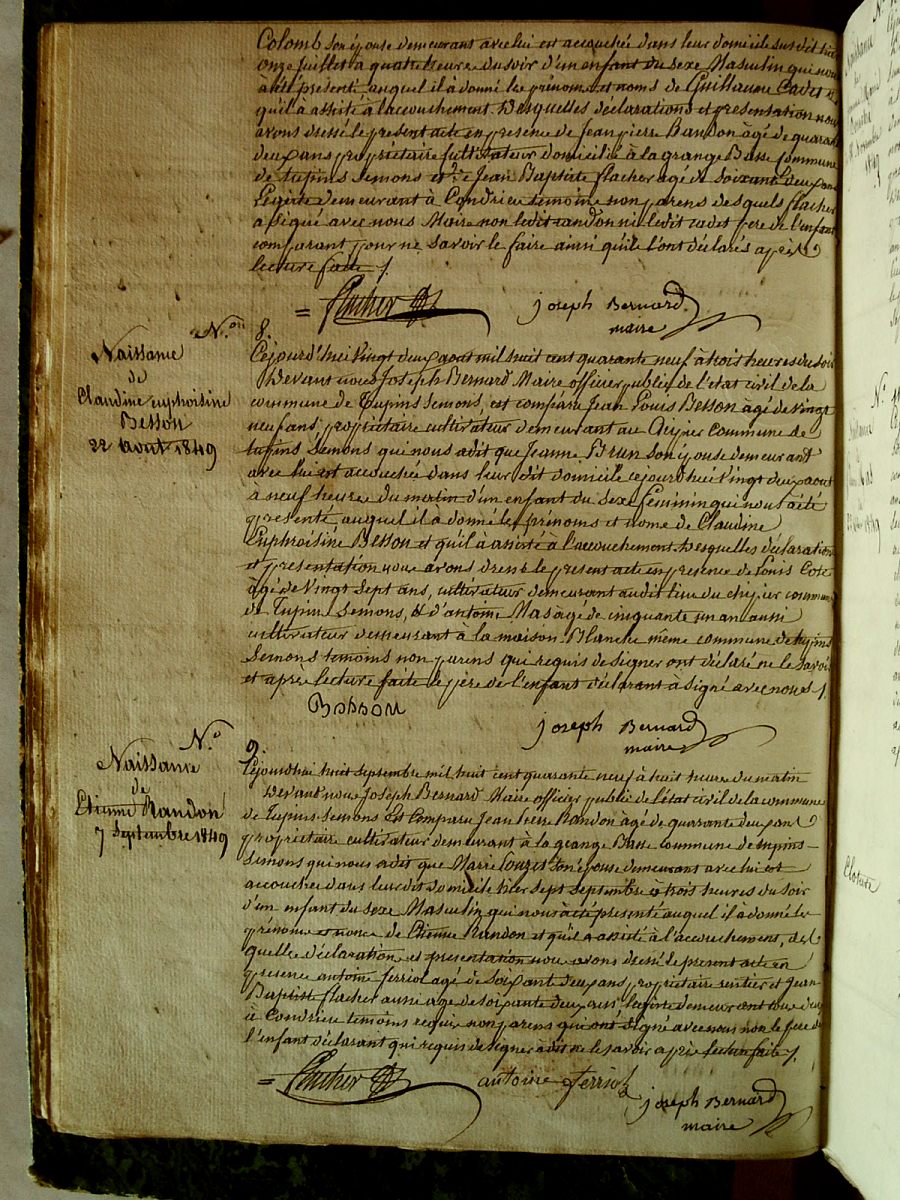 Colomb son épouse demeurant avec lui est accouchée dans leur domicile susdit hier
onze juillet à quatre heure du soir d'un enfant du sexe Masculin qui nous
à été présenté, auquel il à donné les prénoms et noms de Guillaume Cadet et
qu'il à assisté à l'accouchement. Desquelles déclarations et présentation nous
avons dressé le présent acte en présence de Jean pierre Randon àgé de quarante
deux ans propriétaire cultivateur domicilié à la grange Basse Commune
de tupins Semons et de Jean Baptiste flacher agé de soixante deux ans
Légiste demeurant à Condrieu temoins non parens desquels flacher
a signé avec nous Maire non ledit randon ni ledit cadet pere de l'enfant
comparant pour ne savoir le faire ainsi qu'ils l'ont déclarés après
lecture faite /.
= flacher
joseph Bernard
maire
N.° 8.
Naissance
de
Claudine euphoisine
Besson
22 Aout 1849
Cejourd'hui Vingt deux aout mil huit cent quarante neuf à trois heures du soir
Devant nous Joseph Bernard Maire officier public de l'état civil de la
commune de Tupins Semons, est comparu Jean Louis Besson àgé de vingt
neuf ans, propriétaire cultivateur demeurant au commune de
tupins Sémons qui nous a dit que Jeanne Brun son épouse demeurant
avec lui est accouchée dans leur dit domicile cejourd'hui vingt deux aout
à neuf heures du matin d'un enfant du sexe féminin qui nous à été
présenté, auquel il à donné les prénoms et noms de Claudine
Euphoisine Besson et qu'il à assisté à l'accouchement. Desquelles déclaration
et présentation nous avons dressé le présent acte en présence de Louis
àgé de vingt sept ans, cultivateur demeurant audit lieu du commune
de Tupins Semons, & d'antoine Mas àgé de cinquante un an aussi
cultivateur demeurant à la maison Blanche même commune de tupins
Semons temoins non parens qui requis de signer ont déclaré ne le savoir
et après lecture faite le père de l'enfant déclarant à signé avec nous /.
Besson
joseph Bernard
maire
N.° 9.
Naissance
de
Etienne Randon
7 Septembre 1849
Cejourdhui huit Septembre mil huit cent quarante neuf à huit heure du matin
Devant nous Joseph Bernard Maire officier public de l'état civil de la commune
de Tupins-Semons Est Comparu Jean pierre Randon àgé de quarante deux ans
propriétaire cultivateur demeurant à la grange Basse commune de tupins-
Semons qui nous a dit que Marie son épouse demeurant avec lui est
accouchée dans leur dit domicile hier sept septembre à trois heures du soir
d'un enfant du sexe Masculin qui nous à été présenté auquel il à donné les
prénoms et noms de Etienne Randon et qu'il a assisté à l'accouchement, des
quelle déclaration et présentation nous avons dressé le présent acte en
présence antoine ferriol agé de soixante deux ans propriétaire rentier et Jean
Baptiste flacher aussi age de soixante deux ans légiste demeurant tous deux
à Condrieu temoins requis non parens qui ont signé avec nous non le pere de
l'enfant déclarant qui requis de signer à dit ne le savoir après lecture faite /.
= flacher
antoine ferriol
joseph Bernard
maire